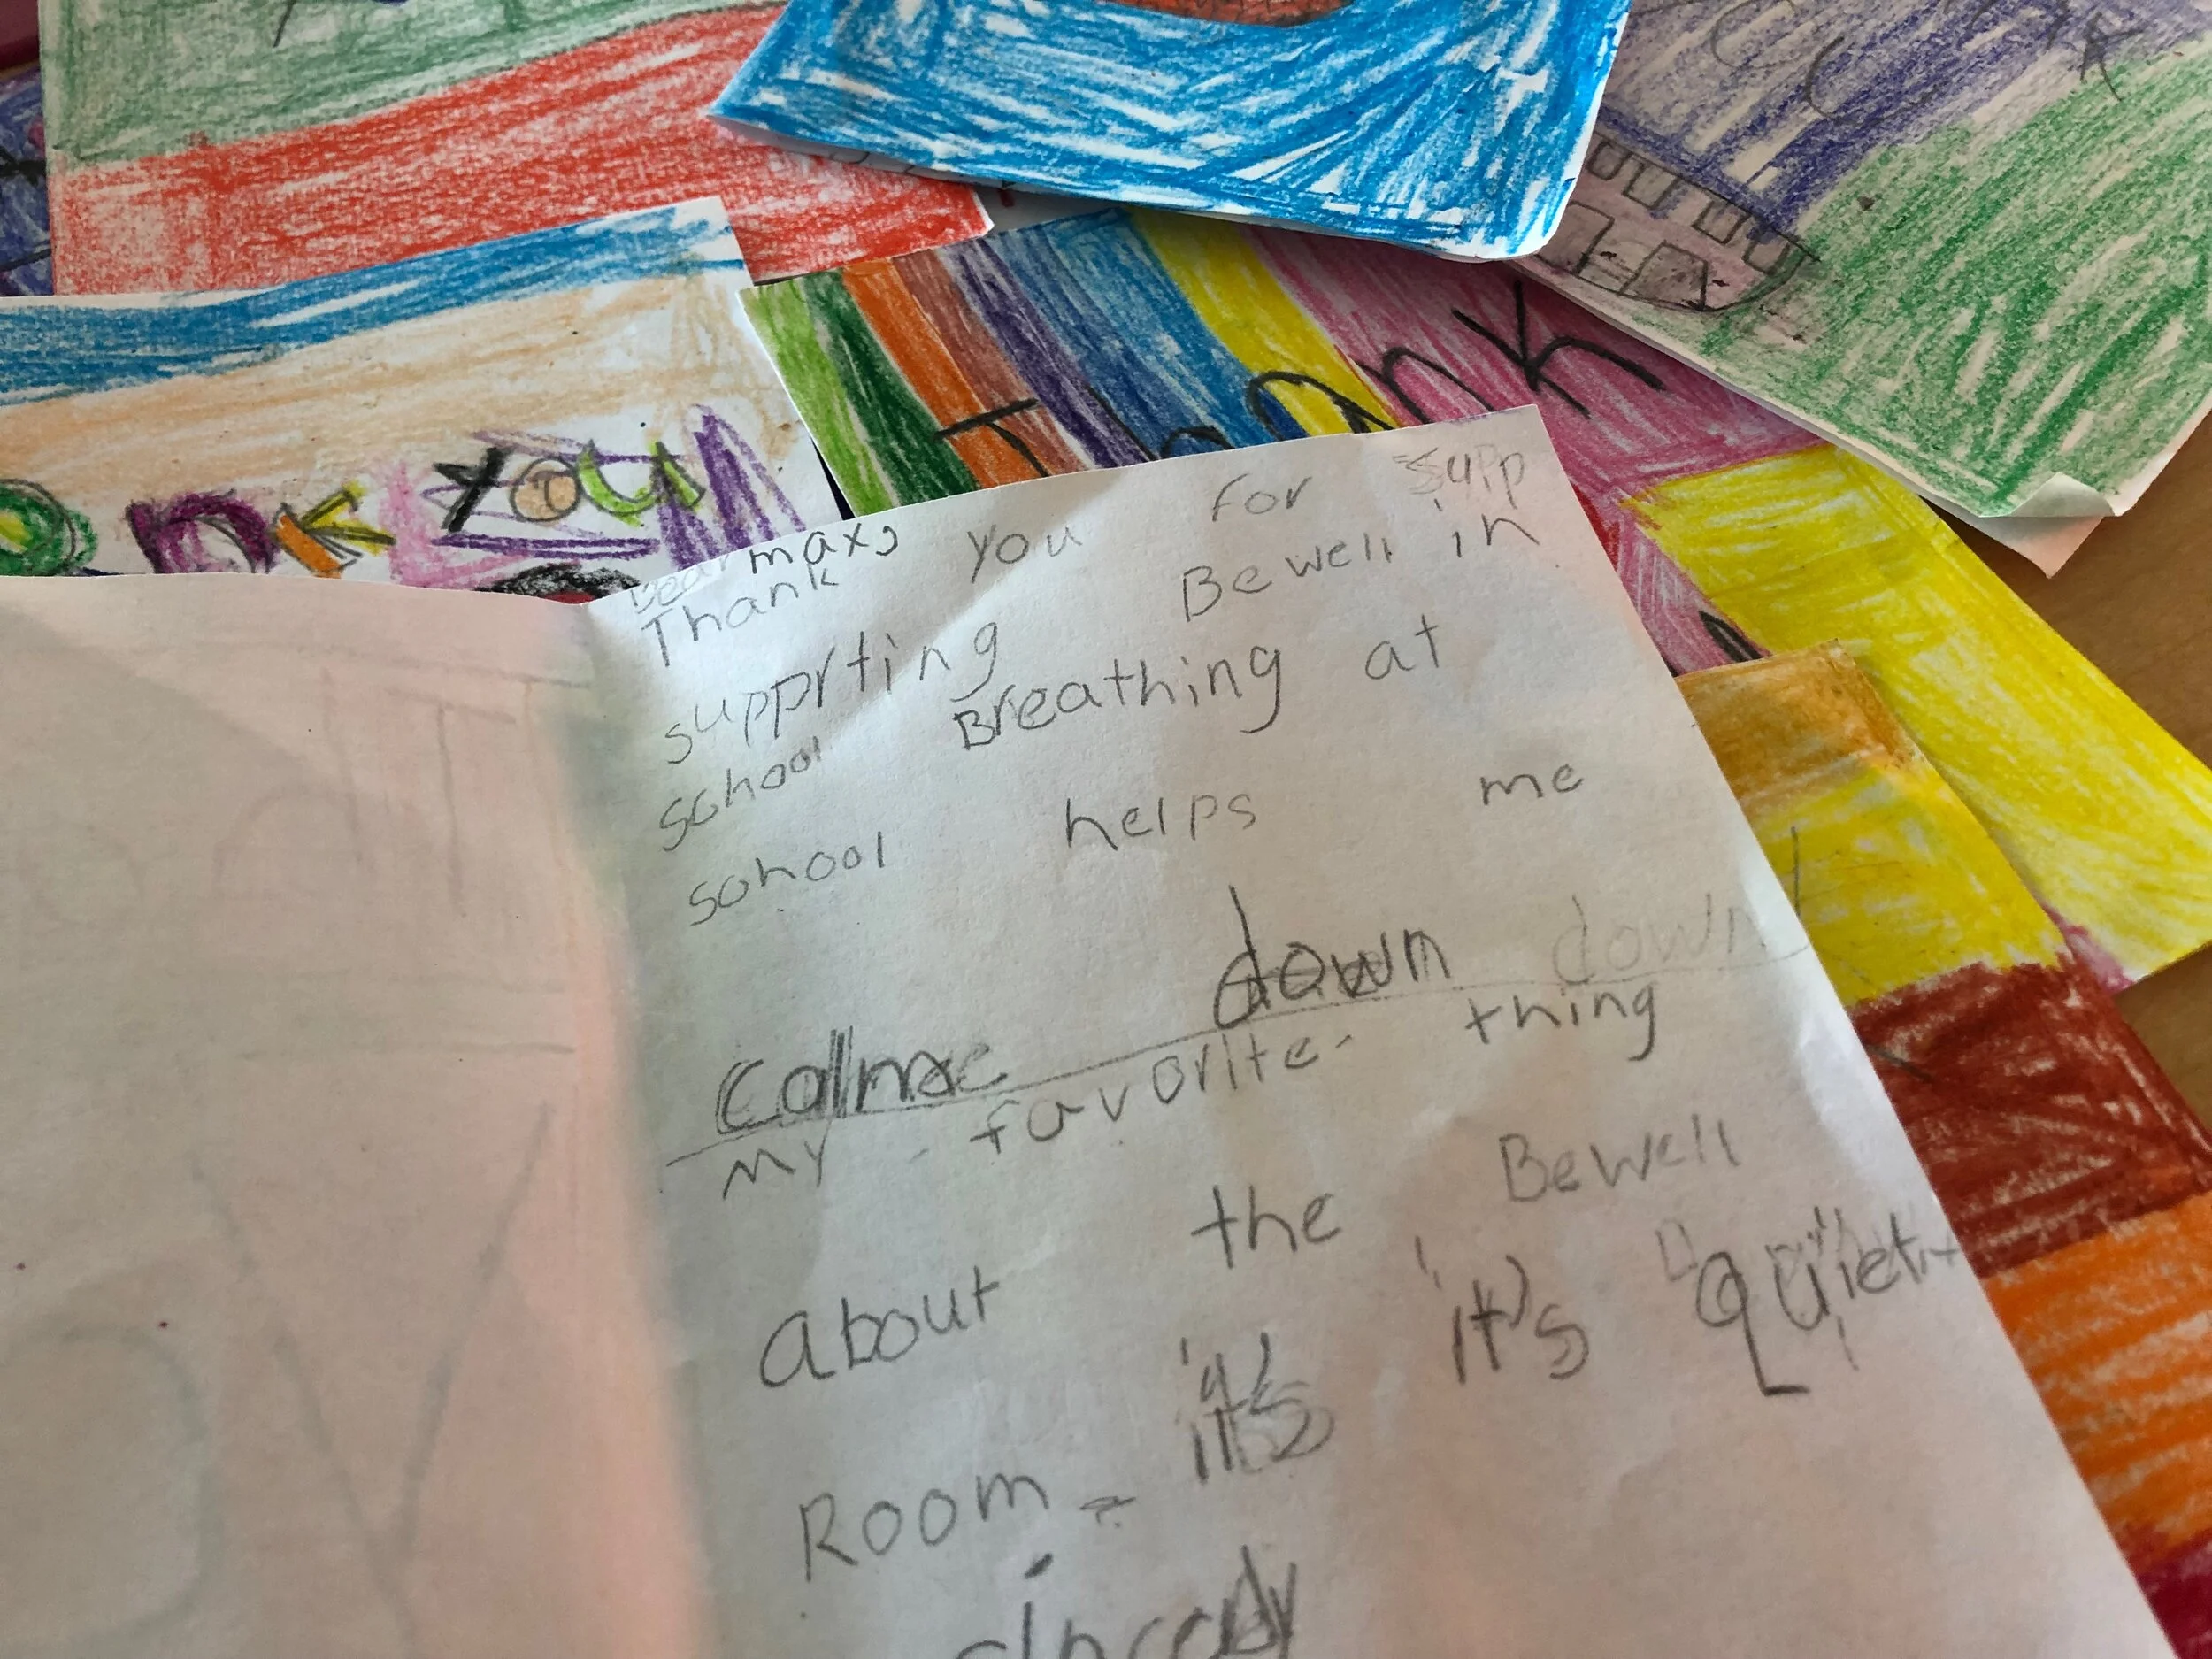 Thank
onk you
Dear max,
Thank you for supp
supprting Bewell in
school Breathing at
school helps me
calme down down
my favorite thing
About the Bewell
Room it's it's quiet
sincerely